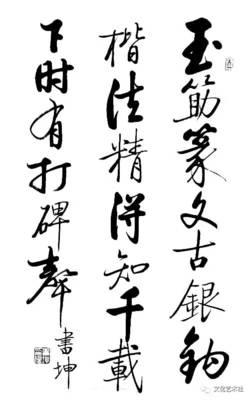 玉筯篆文古銀鈎
楷法精得知千載
下时有打碑聲
書坤
文化艺术社